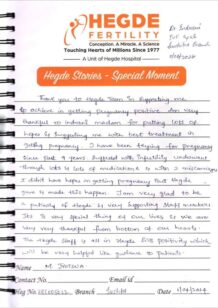 HEGDE
FERTILITY
Conception. A Miracle. A Science
Touching Hearts of Millions Since 1977
A Unit of Hegde Hospital
Dr. Indrani
Hegde Stories - Special Moment
Thank you to Hegde Team In Supporting me
to achieve in getting pregnancy positive. I am very
thankful to Indrani madam for putting lots of
hopes & supporting me with best treatment in
getting pregnancy. I have been trying for pregnancy
Since past 9 years suffered with infertility underwent
through lots & lots of medications & with 2 miscarriages
I didn't have hopes in getting pregnancy but Hegde
gave & made this happen. I am very glad to be
a patient of Hegde & very supporting staff members
Its a very special thing of our lives & we are
very very thankful from bottom of our hearts.
The Hegde staff & all in Hegde give positivity which
will be very helpful like guidance to patients.
Name M. Jyotsna
Contact No. Email id
Reg No. Branch Suchitra Date